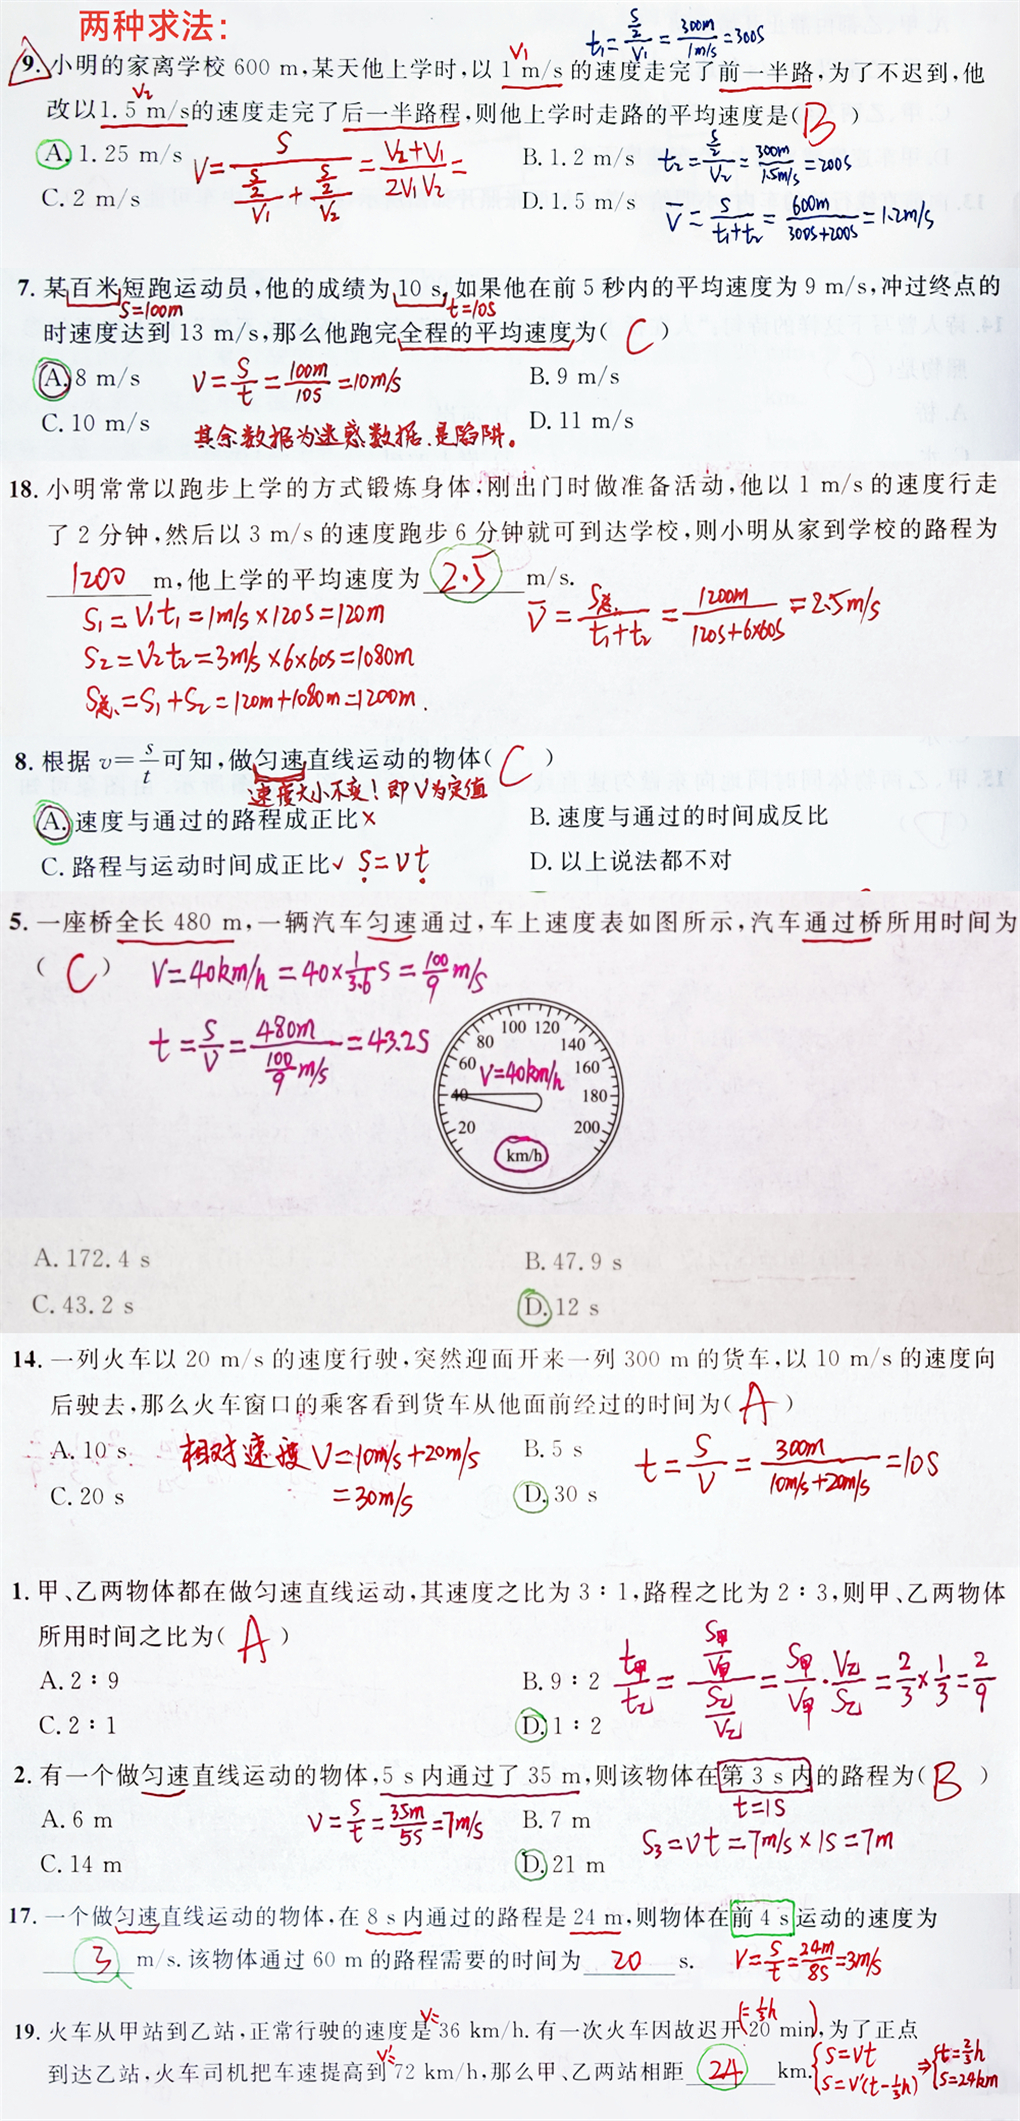 两种求法:
t₁=(s/2)/V₁=300m/1m/s=300s
V₁
9. 小明的家离学校 600 m,某天他上学时,以 1 m/s 的速度走完了前一半路,为了不迟到,他
V₂
改以1.5 m/s的速度走完了后一半路程,则他上学时走路的平均速度是( B )
A. 1.25 m/s
B. 1.2 m/s
V=S/((S/2)/V₁+(S/2)/V₂)=(V₂+V₁)/(2V₁V₂)=
t₂=(s/2)/V₂=300m/1.5m/s=200s
C. 2 m/s
D. 1.5 m/s
V̄=s/(t₁+t₂)=600m/(300s+200s)=1.2m/s
7. 某百米短跑运动员,他的成绩为 10 s,如果他在前 5 秒内的平均速度为 9 m/s,冲过终点的
S=100m t=10s
时速度达到 13 m/s,那么他跑完全程的平均速度为( C )
A. 8 m/s
V=S/t=100m/10s=10m/s
B. 9 m/s
C. 10 m/s
其余数据为迷惑数据.是陷阱。
D. 11 m/s
18. 小明常常以跑步上学的方式锻炼身体:刚出门时做准备活动,他以 1 m/s 的速度行走
了 2 分钟,然后以 3 m/s 的速度跑步 6 分钟就可到达学校,则小明从家到学校的路程为
1200 m,他上学的平均速度为 2.5 m/s.
S₁=V₁t₁=1m/s×120s=120m
V̄=S总/(t₁+t₂)=1200m/(120s+6×60s)=2.5m/s
S₂=V₂t₂=3m/s×6×60s=1080m
S总=S₁+S₂=120m+1080m=1200m.
8. 根据 v=s/t 可知,做匀速直线运动的物体( C )
速度大小不变!即V为定值
A. 速度与通过的路程成正比 ×
B. 速度与通过的时间成反比
C. 路程与运动时间成正比 ✓ S=Vt
D. 以上说法都不对
5. 一座桥全长 480 m,一辆汽车匀速通过,车上速度表如图所示,汽车通过桥所用时间为
( C )
V=40km/h=40×1/3.6 s=100/9 m/s
t=S/V=480m/(100/9 m/s)=43.2s
100 120
80 140
60 V=40km/h 160
40 180
20 200
km/h
A. 172.4 s
B. 47.9 s
C. 43.2 s
D. 12 s
14. 一列火车以 20 m/s 的速度行驶,突然迎面开来一列 300 m 的货车,以 10 m/s 的速度向
后驶去,那么火车窗口的乘客看到货车从他面前经过的时间为( A )
A. 10 s
相对速度V=10m/s+20m/s
B. 5 s
t=S/V=300m/(10m/s+20m/s)=10s
C. 20 s
=30m/s
D. 30 s
1. 甲、乙两物体都在做匀速直线运动,其速度之比为 3∶1,路程之比为 2∶3,则甲、乙两物体
所用时间之比为( A )
A. 2∶9
B. 9∶2
t甲/t乙=(S甲/V甲)/(S乙/V乙)=S甲/V甲·V乙/S乙=2/3×1/3=2/9
C. 2∶1
D. 1∶2
2. 有一个做匀速直线运动的物体,5 s 内通过了 35 m,则该物体在第 3 s 内的路程为( B )
t=1s
A. 6 m
V=S/t=35m/5s=7m/s
B. 7 m
S₃=Vt=7m/s×1s=7m
C. 14 m
D. 21 m
17. 一个做匀速直线运动的物体,在 8 s 内通过的路程是 24 m,则物体在前 4 s 运动的速度为
3 m/s. 该物体通过 60 m 的路程需要的时间为 20 s.
V=S/t=24m/8s=3m/s
V= (=1/3h)
19. 火车从甲站到乙站,正常行驶的速度是 36 km/h. 有一次火车因故迟开 20 min,为了正点
V'=
到达乙站,火车司机把车速提高到 72 km/h,那么甲、乙两站相距 24 km.
{S=Vt
S=V'(t-1/3h) ⇒ {t=2/3h
S=24km